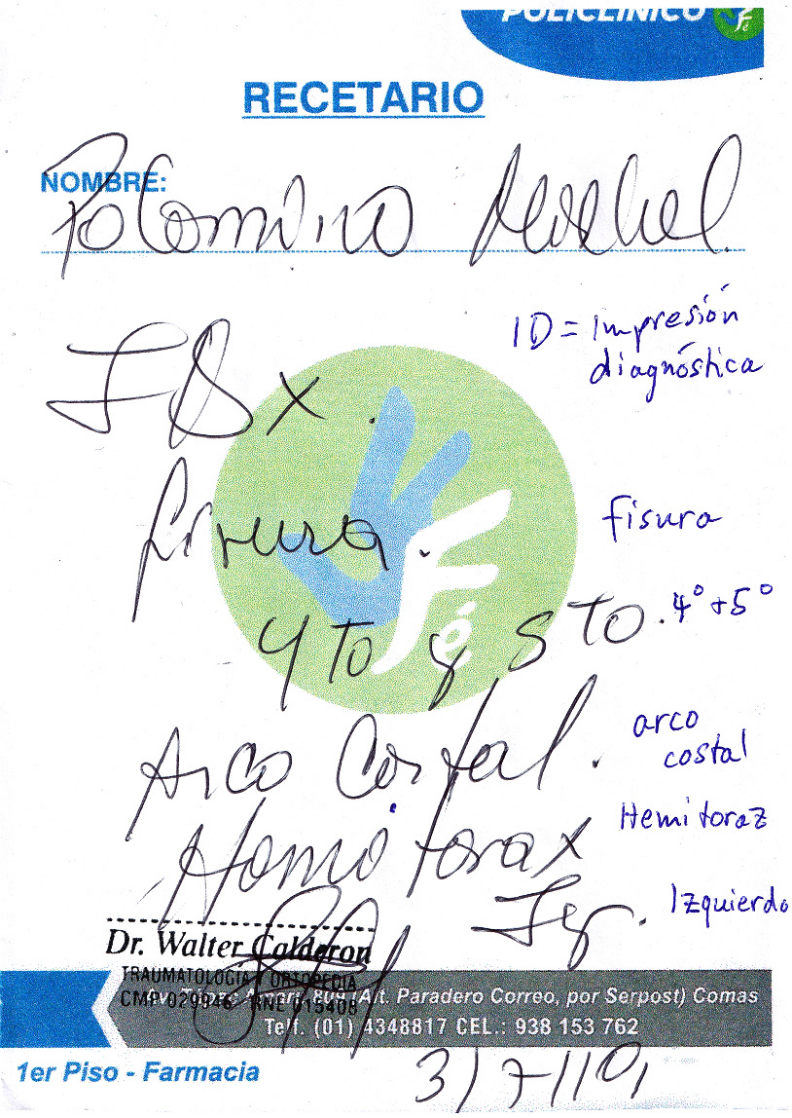 POLICLINICO Fé
RECETARIO
NOMBRE:
Palomino
ID = Impresión
diagnóstica
IDx.
fisura.
fisura
4to y 5to.
4° + 5°
Fé
Arco Costal.
arco
costal
Hemitorax
Hemitoraz
Izq.
Izquierdo
Dr. Walter Calderon
TRAUMATOLOGIA ORTOPEDIA
CMP 029946 RNE 015408
(Alt. Paradero Correo, por Serpost) Comas
Telf. (01) 4348817 CEL.: 938 153 762
1er Piso - Farmacia